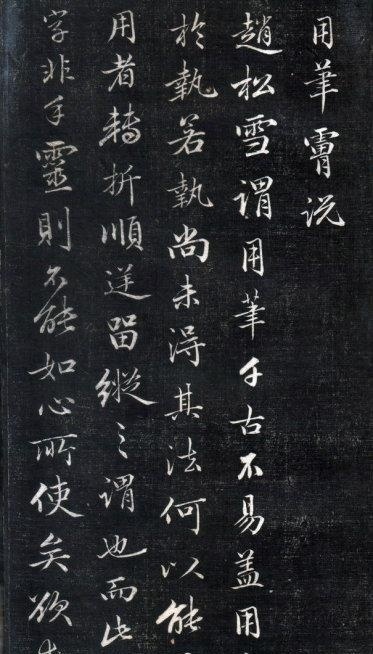 用筆膚说
趙松雪謂用筆千古不易盖用
於執若執尚未得其法何以能
用者轉折順逆留縱之謂也而此
字非手靈則不能如心所使矣欲